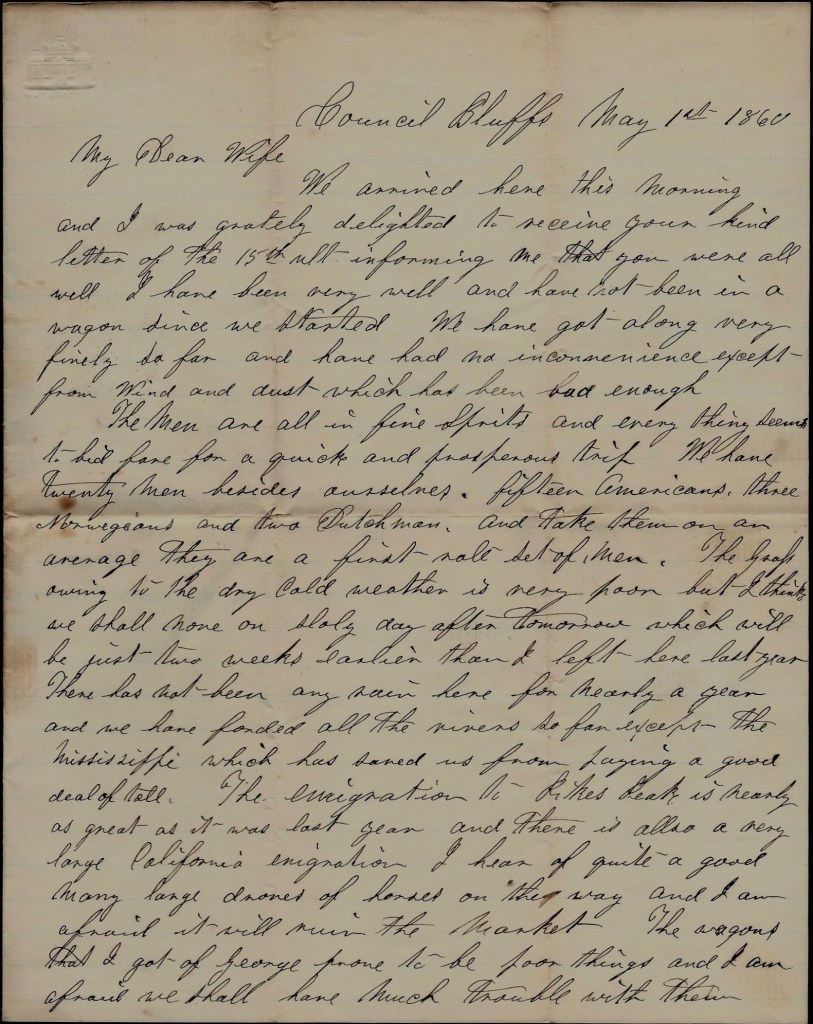 Council Bluffs May 1st 1860
My Dear Wife
We arrived here this morning
and I was grately delighted to receive your kind
letter of the 15th ult. informing me that you were all
well I have been very well and have not been in a
wagon since we started We have got along very
finely so far and have had no inconvenience except
from Wind and dust which has been bad enough
The Men are all in fine Sprits and every thing seems
to bid fare for a quick and prosperous trip We have
twenty Men besides ourselves. fifteen Americans, three
Norwegians and two Dutchman. and take them on an
average they are a first rate set of Men. The Grass
owing to the dry Cold weather is very poor but I think
we shall move on sloly day after tomorrow which will
be just two weeks earlier than I left here last year
There has not been any rain here for nearly a year
and we have forded all the rivers so far except the
Mississippi which has saved us from paying a good
deal of toll. The emigration to Pikes Peak is nearly
as great as it was last year and there is allso a very
large California emigration I hear of quite a good
Many large droves of horses on the way and I am
afraid it will ruin the Market The wagons
that I got of George prove to be poor things and I am
afraid we shall have Much trouble with them